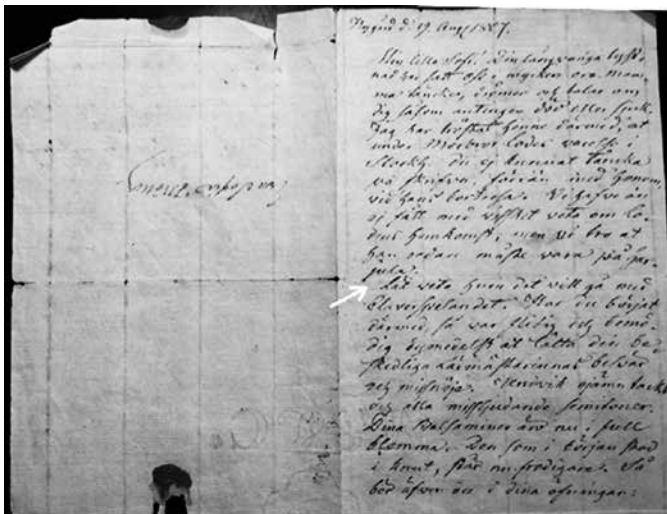 d. 19. Aug
Min lilla Sofi! Din långvariga tystnad
har satt oss i mycken oro. Mam
ma tänker, drömer och talar om
dig såsom antingen död eller sjuk.
Jag har tröstat henne därmed, at
under Morbror varelse i
Stockh. du ej kunnat täncka
på skrifva, förrän med honom,
vid hans bortresa. Vi hafve än
ej fått med visshet veta om
hemkomst, men vi tro at
han redan måste vara på
Låt veta huru det vill gå med
Claverspelandet. Har du börjat
därmed, så var flitig och
dig at lätta din be
skedliga läromästarinnas besvär
och missnöje. Undvik ojämn tackt
och alla missljudande semitoner.
Dina Balsaminer äro nu i full
blomma. Den som i början stod
i knut, står nu frodigare. Så
bör äfven du i dina öfningar:
Sofia